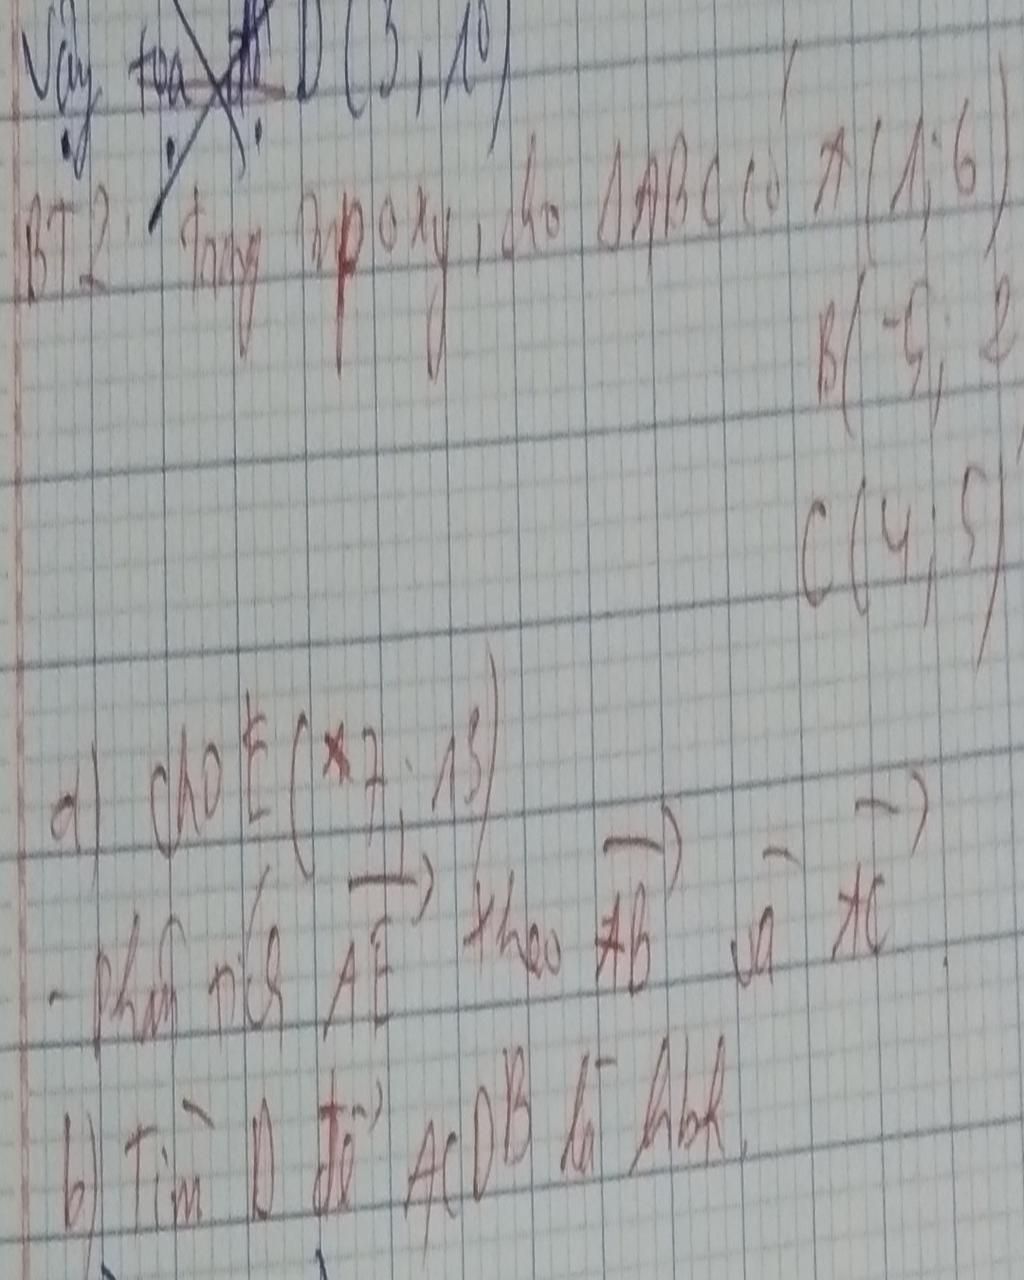 Vậy tọa độ D(3, 10)
BT2: Trong mp oxy, cho ΔABC có A(1; 6)
B(-5; 2
C(4; 5)
a) cho E(7; 15)
- phân tích AE theo AB và AC
b) Tìm D để ACDB là hbh